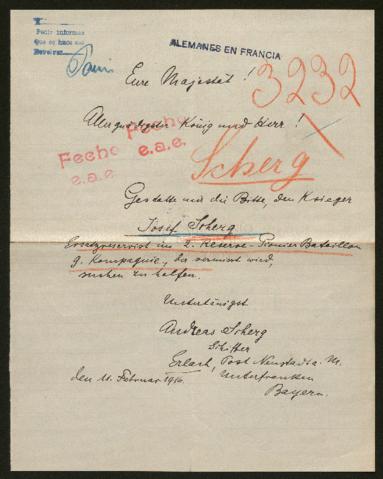 Pedir informes
que se hace sus
Paris
ALEMANES EN FRANCIA
3232
Eure Majestät!
Allergnädigster König und Herr!
Fecho Fecho
e.a.e. e.a.e.
Scherg
Gestatte mir die Bitte, den Krieger
Josef Scherg
Ersatzreservist im 2. Reserve-Pionier Bataillon
9. Kompagnie, der vermisst wird,
suchen zu helfen.
Untertänigst
Andreas Scherg
Schiffer
Erlach, Post Neustadt a. M.
Unterfranken
Bayern.
den 11. Februar 1916.